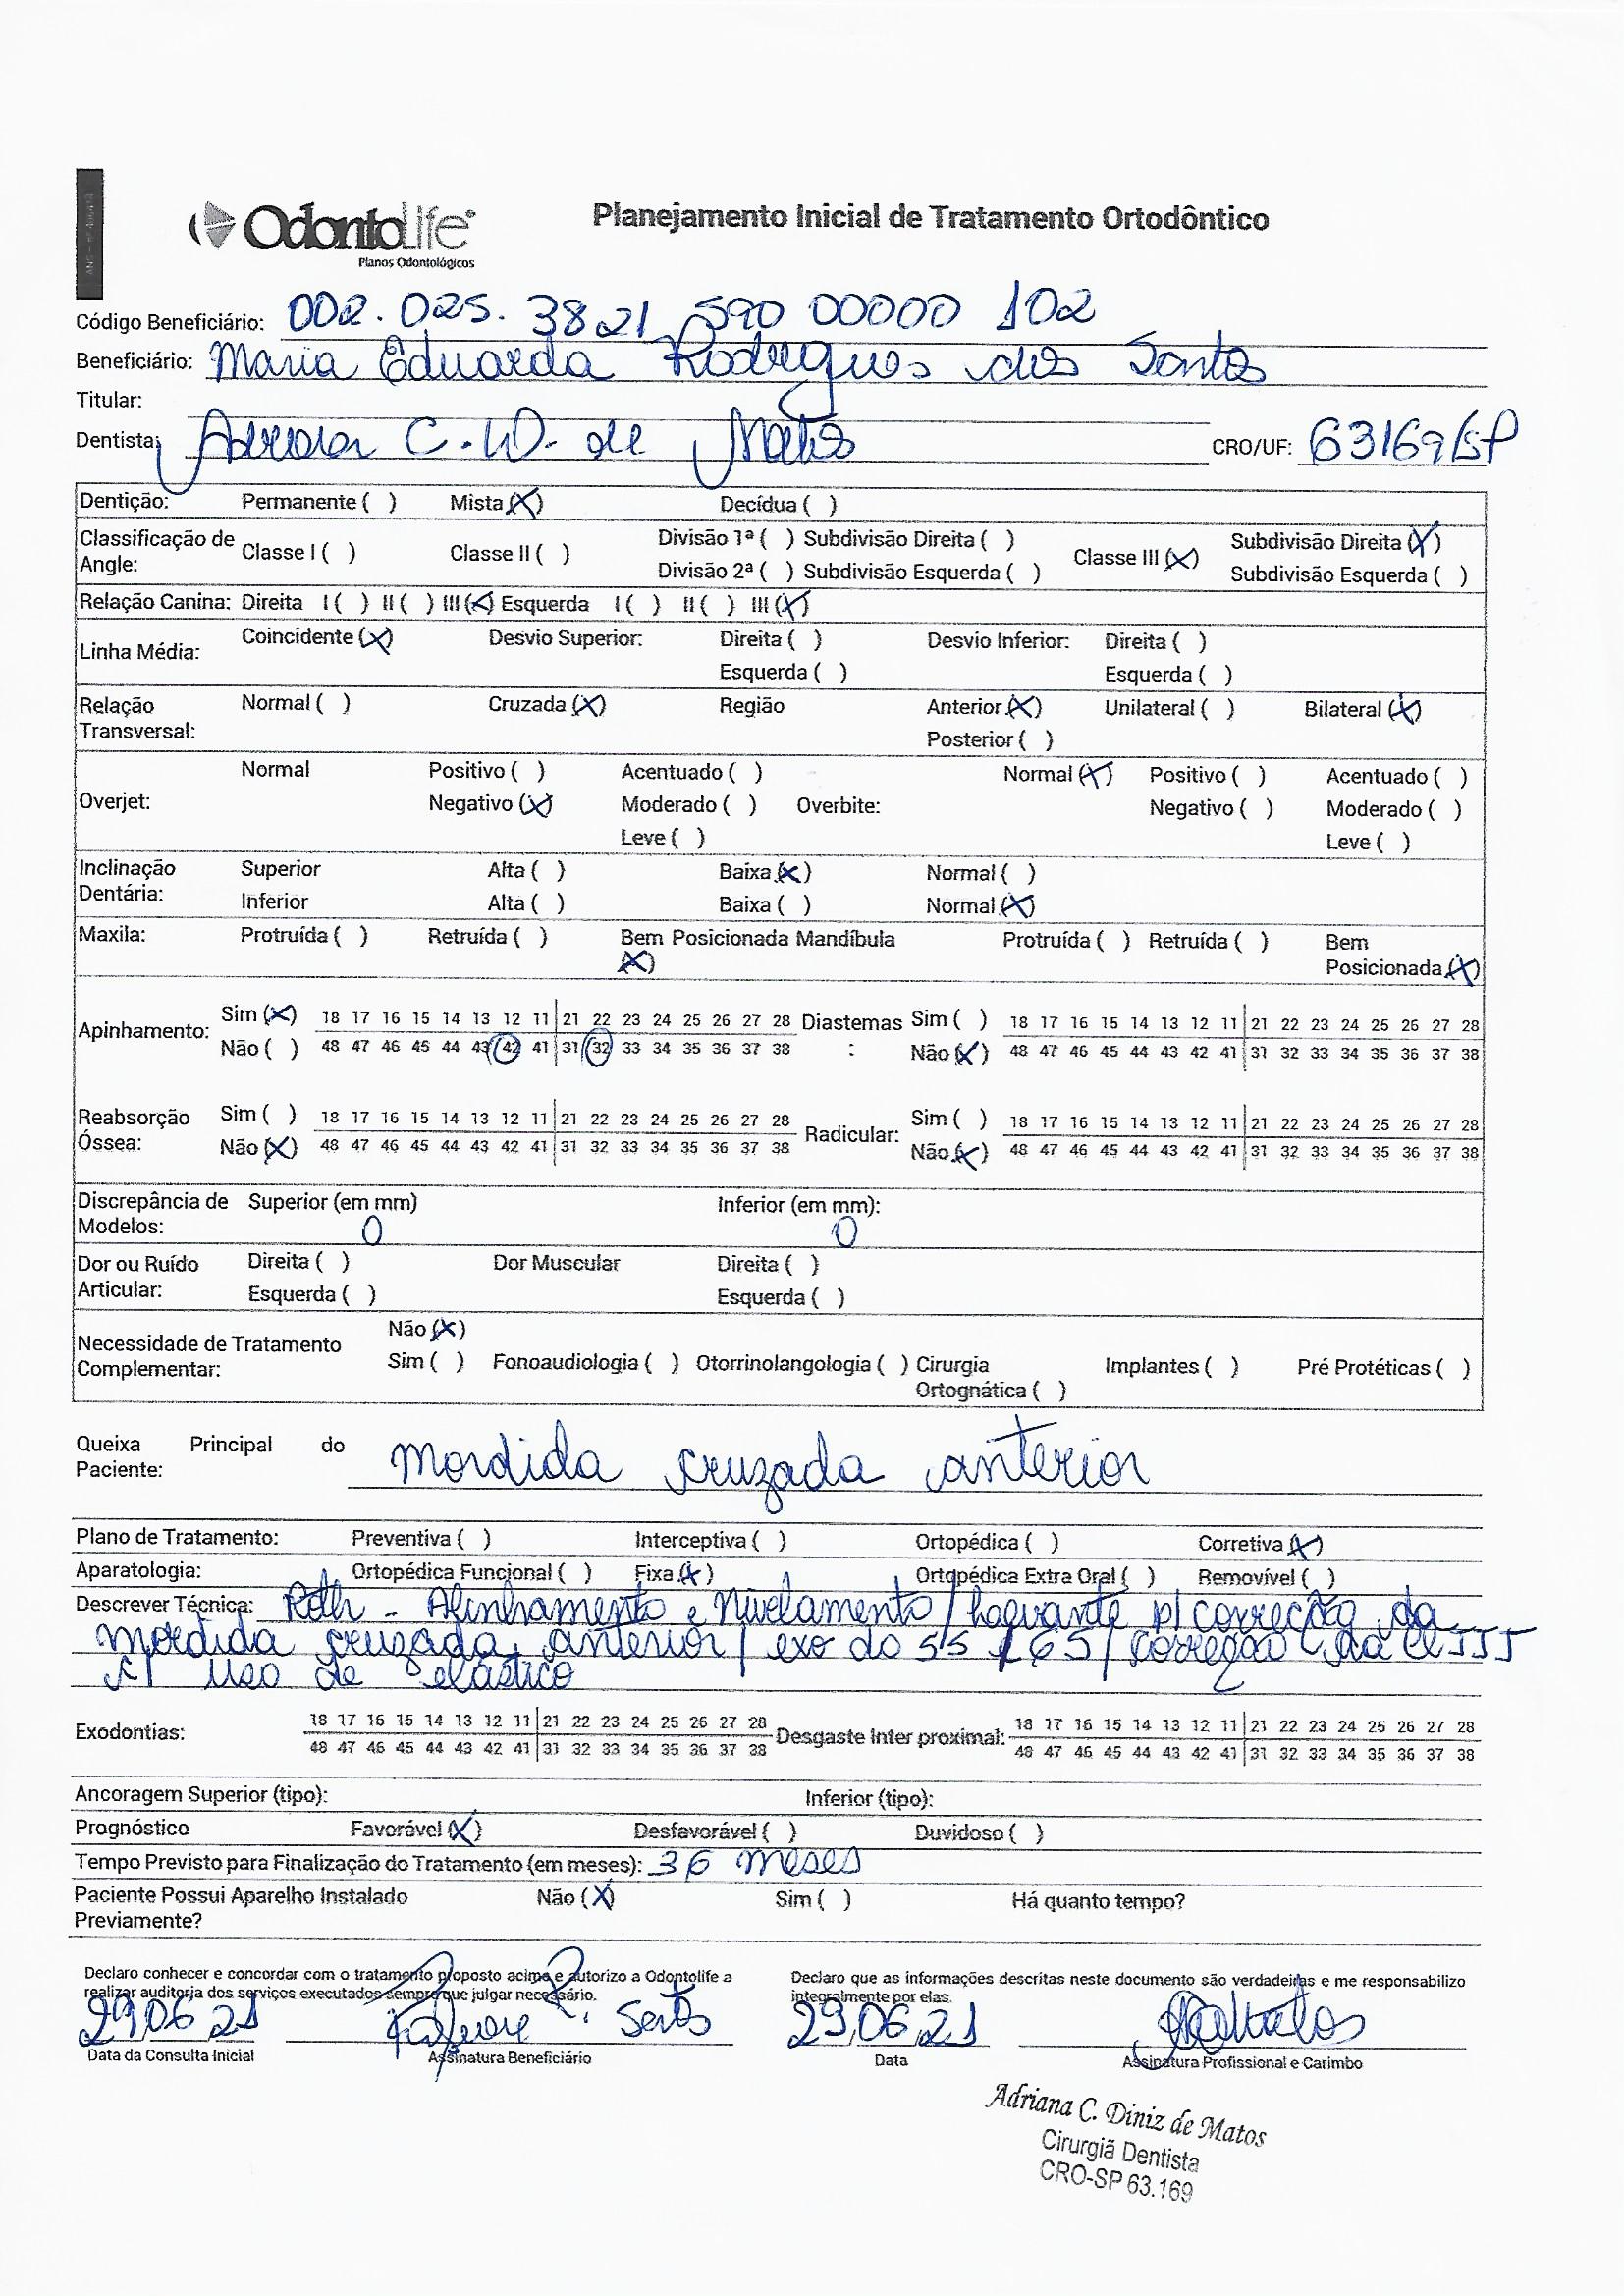 OdontoLife
Planos Odontológicos
Planejamento Inicial de Tratamento Ortodôntico
Código Beneficiário: 002.025.3821 590 00000 102
Beneficiário: Maria Eduarda Rodrigues dos Santos
Titular:
Dentista: Adriana C. D. de Matos CRO/UF: 63169/SP
Dentição: Permanente ( ) Mista (X) Decídua ( )
Classificação de Angle: Classe I ( ) Classe II ( ) Divisão 1ª ( ) Subdivisão Direita ( ) Classe III (X) Subdivisão Direita (X)
Divisão 2ª ( ) Subdivisão Esquerda ( ) Subdivisão Esquerda ( )
Relação Canina: Direita I ( ) II ( ) III (X) Esquerda I ( ) II ( ) III (X)
Linha Média: Coincidente (X) Desvio Superior: Direita ( ) Desvio Inferior: Direita ( )
Esquerda ( ) Esquerda ( )
Relação Transversal: Normal ( ) Cruzada (X) Região Anterior (X) Unilateral ( ) Bilateral (X)
Posterior ( )
Overjet: Normal Positivo ( ) Acentuado ( ) Overbite: Normal (X) Positivo ( ) Acentuado ( )
Negativo (X) Moderado ( ) Negativo ( ) Moderado ( )
Leve ( ) Leve ( )
Inclinação Dentária: Superior Alta ( ) Baixa (X) Normal ( )
Inferior Alta ( ) Baixa ( ) Normal (X)
Maxila: Protruída ( ) Retruída ( ) Bem Posicionada (X) Mandíbula Protruída ( ) Retruída ( ) Bem Posicionada (X)
Apinhamento: Sim (X) 18 17 16 15 14 13 12 11 21 22 23 24 25 26 27 28 Diastemas: Sim ( ) 18 17 16 15 14 13 12 11 21 22 23 24 25 26 27 28
Não ( ) 48 47 46 45 44 43 42 41 31 32 33 34 35 36 37 38 Não (X) 48 47 46 45 44 43 42 41 31 32 33 34 35 36 37 38
Reabsorção Óssea: Sim ( ) 18 17 16 15 14 13 12 11 21 22 23 24 25 26 27 28 Radicular: Sim ( ) 18 17 16 15 14 13 12 11 21 22 23 24 25 26 27 28
Não (X) 48 47 46 45 44 43 42 41 31 32 33 34 35 36 37 38 Não (X) 48 47 46 45 44 43 42 41 31 32 33 34 35 36 37 38
Discrepância de Modelos: Superior (em mm) 0 Inferior (em mm): 0
Dor ou Ruído Articular: Direita ( ) Dor Muscular Direita ( )
Esquerda ( ) Esquerda ( )
Necessidade de Tratamento Complementar: Não (X)
Sim ( ) Fonoaudiologia ( ) Otorrinolangologia ( ) Cirurgia Ortognática ( ) Implantes ( ) Pré Protéticas ( )
Queixa Principal do Paciente: Mordida cruzada anterior
Plano de Tratamento: Preventiva ( ) Interceptiva ( ) Ortopédica ( ) Corretiva (X)
Aparatologia: Ortopédica Funcional ( ) Fixa (X) Ortopédica Extra Oral ( ) Removível ( )
Descrever Técnica: Roth - Alinhamento e Nivelamento / p/ correção da
mordida cruzada anterior / exo do 55 e 65 / correção da Cl III
c/ uso de elástico
Exodontias: 18 17 16 15 14 13 12 11 21 22 23 24 25 26 27 28 Desgaste Inter proximal: 18 17 16 15 14 13 12 11 21 22 23 24 25 26 27 28
48 47 46 45 44 43 42 41 31 32 33 34 35 36 37 38 48 47 46 45 44 43 42 41 31 32 33 34 35 36 37 38
Ancoragem Superior (tipo): Inferior (tipo):
Prognóstico Favorável (X) Desfavorável ( ) Duvidoso ( )
Tempo Previsto para Finalização do Tratamento (em meses): 36 meses
Paciente Possui Aparelho Instalado Previamente? Não (X) Sim ( ) Há quanto tempo?
Declaro conhecer e concordar com o tratamento proposto acima e autorizo a Odontolife a
realizar auditoria dos serviços executados sempre que julgar necessário.
Declaro que as informações descritas neste documento são verdadeiras e me responsabilizo
integralmente por elas.
29 06 21 Santos 29,06,21
Data da Consulta Inicial Assinatura Beneficiário Data Assinatura Profissional e Carimbo
Adriana C. Diniz de Matos
Cirurgiã Dentista
CRO-SP 63.169